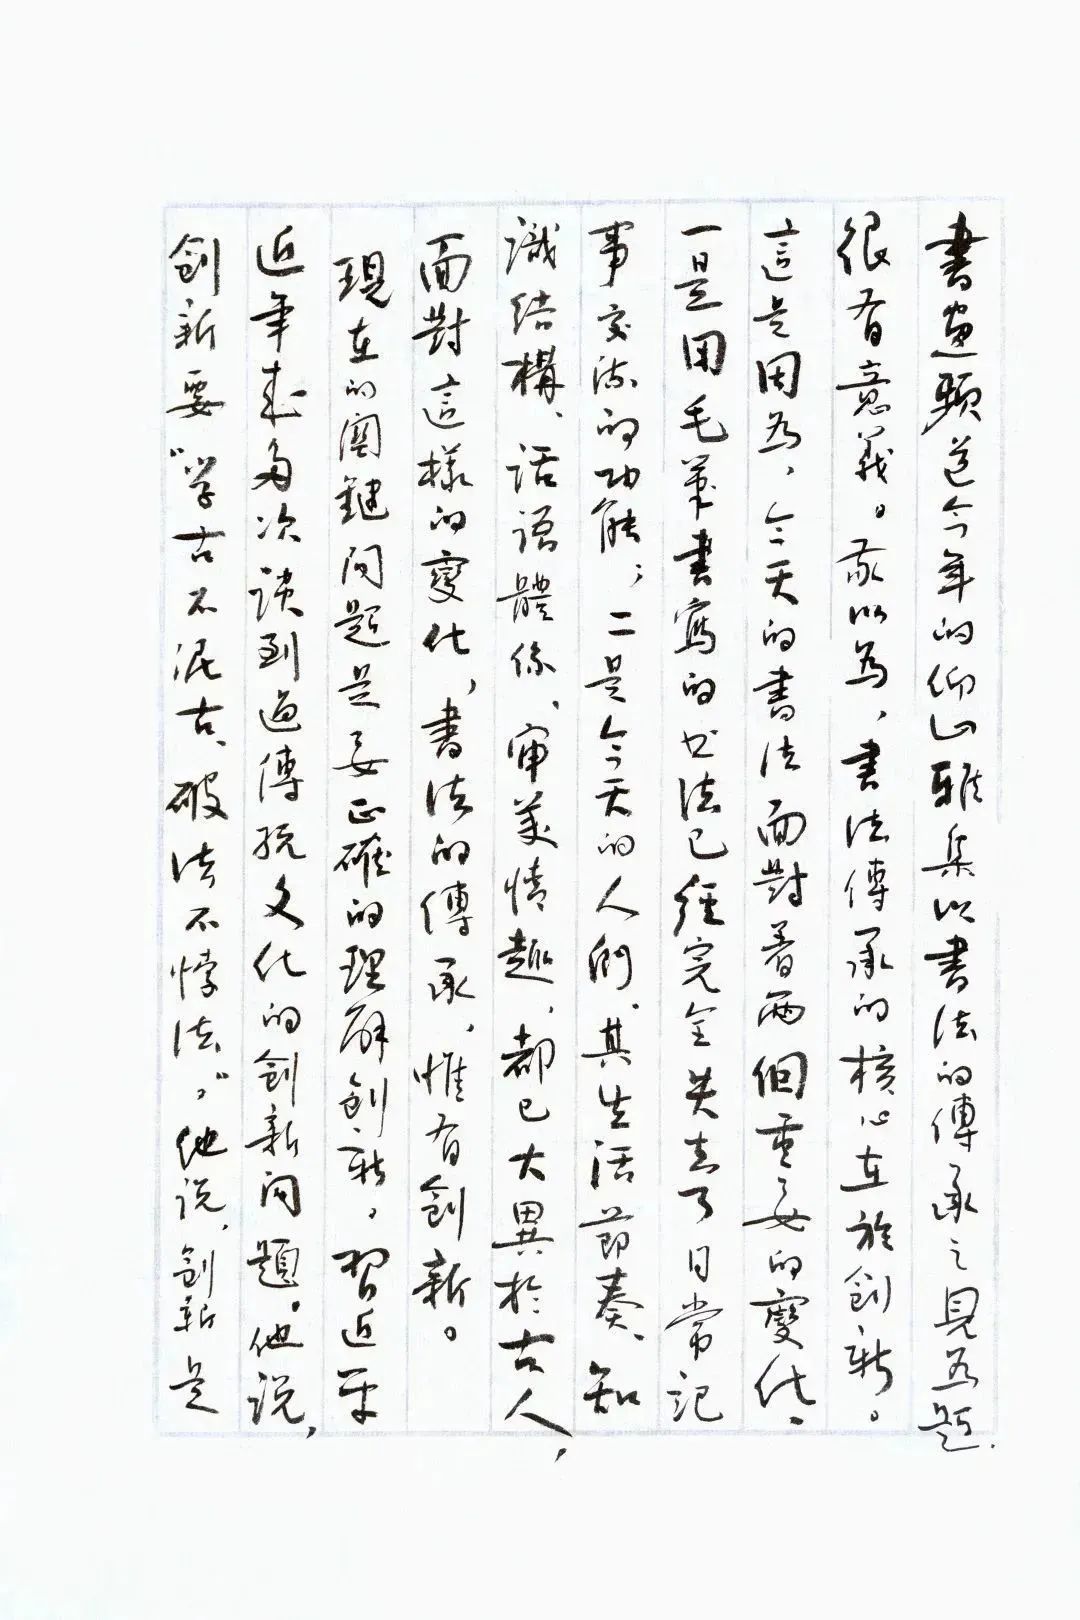 書畫頻道今年的仰山雅集以書法的傳承之見為題，
很有意義。我以為，書法傳承的核心在於創新。
這是因為，今天的書法面對着兩個重要的變化，
一是用毛筆書寫的书法已經完全失去了日常記
事交流的功能，二是今天的人們，其生活節奏、知
識結構、話語體係、审美情趣，都已大異於古人，
面對這樣的變化，書法的傳承，惟有創新。
現在的關鍵问題是要正確的理解創新。習近平
近年来多次談到過傳統文化的創新问題。他説，
創新要“学古不泥古、破法不悖法。”他説，創新是